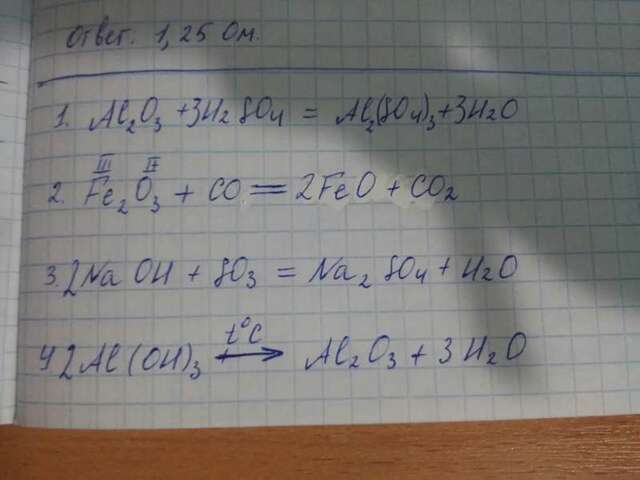 Ответ. 1,25 Ом.
1. Al₂O₃ + 3H₂SO₄ = Al₂(SO₄)₃ + 3H₂O
III II
2. Fe₂O₃ + CO = 2FeO + CO₂
3. 2NaOH + SO₃ = Na₂SO₄ + H₂O
t°C
4. 2Al(OH)₃ → Al₂O₃ + 3H₂O